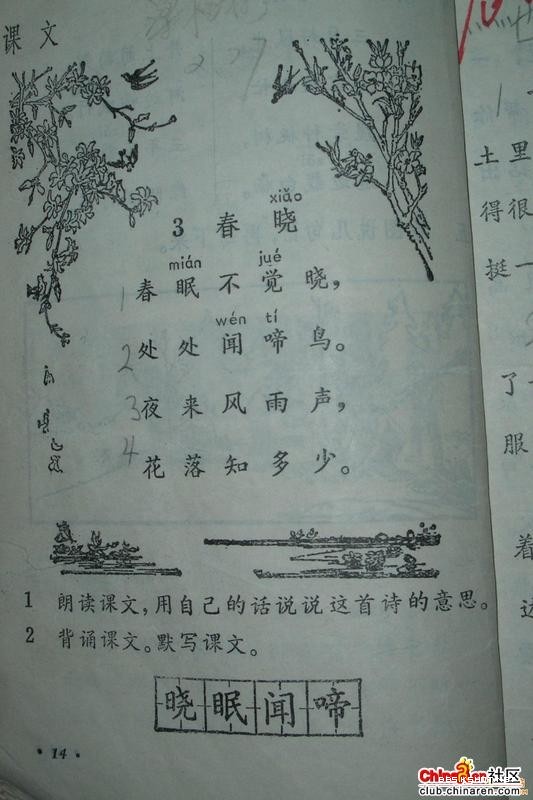 课文
xiǎo
3 春晓
mián jué
1 春眠不觉晓，
wén tí
2 处处闻啼鸟。
3 夜来风雨声，
4 花落知多少。
1 朗读课文，用自己的话说说这首诗的意思。
2 背诵课文。默写课文。
晓眠闻啼
·14·
土里
得很
挺一
了
服
着
ChinaRen社区
club.chinaren.com